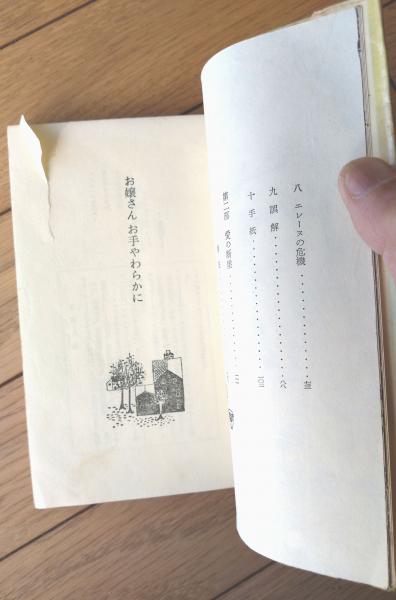 八 エレーヌの危機
九 誤解
十 手紙 一〇一
第二部 愛の断崖
お嬢さん お手やわらかに